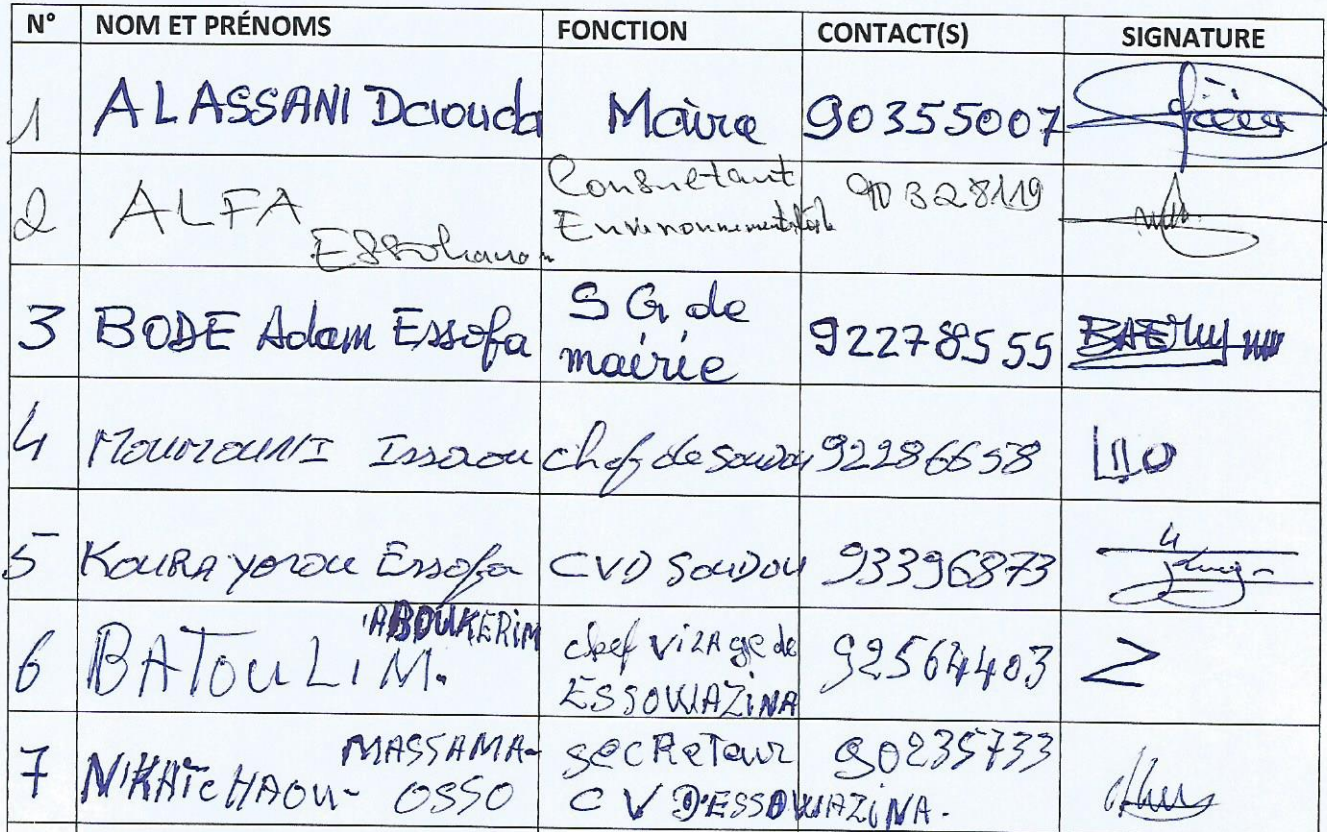 N° NOM ET PRÉNOMS FONCTION CONTACT(S) SIGNATURE
1 ALASSANI Daouda Maire 90355007
2 ALFA Essohanam Consultant Environnementaliste 90328119
3 BODE Adam Essofa SG de mairie 92278555
4 MOUMOUNI Issaou chef de soudou 92286658
5 KOURA YOROU Essofa CVD SOUDOU 93396873
6 BATOULI M. ABOUKERIM chef village de ESSOWAZINA 92564403
7 MASSAMA-OSSO secRetaur CVD'ESSOWAZINA. 90235733